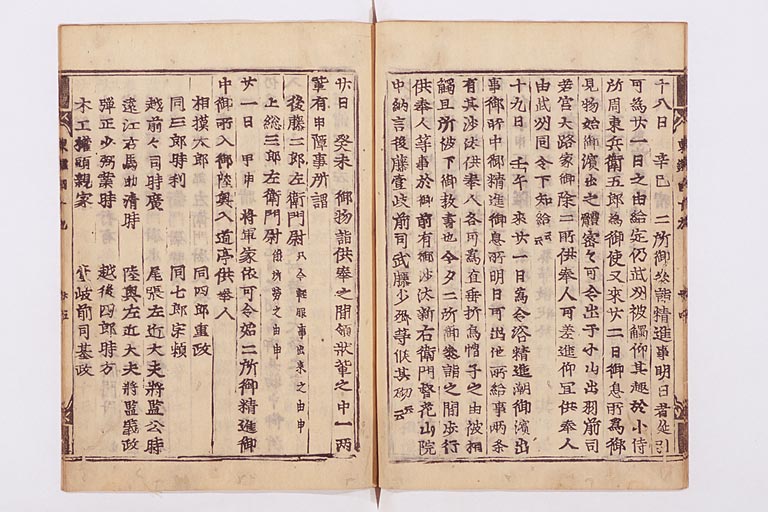 十八日 辛巳 二所御参詣精進事明日者延引
可為廿一日之由給定仍武州被觸仰其趣於小侍
所周東兵衛五郎為御使又来廿二日御息所為御
見物始御濱出之體密々可令出于小山出羽前司
若宮大路家御除二所供奉人可差進仰冝供奉人
由武州同令下知給云云
十九日 壬午 来廿一日為令浴精進潮御濱出
事御所中御精進御息所明日可出他所給事両条
有其沙汰供奉人各可為直垂折烏帽子之由被相
觸且所被下御教書也今夕二所御参詣之間歩行
供奉人等事於御前有御沙汰新右衛門督花山院
中納言後藤壹岐前司武藤少卿等候其砌云云
廿日 癸未 御物詣供奉之間領状輩之中一両
輩有申障事所謂
後藤二郎左衛門尉 只今輕服事出来之由申
上総三郎左衛門尉 俄所労之由申
廿一日 甲申 将軍家依可令始二所御精進御
中御所入御陸奥入道亭供奉人
相摸太郎 同四郎重政
同三郎時利 同七郎宗頼
越前々司時廣 尾張左近大夫将監公時
遠江右馬助清時 陸奥左近大夫将監義政
弾正少弼業時 越後四郎時方
木工権頭親家 壹岐前司基政